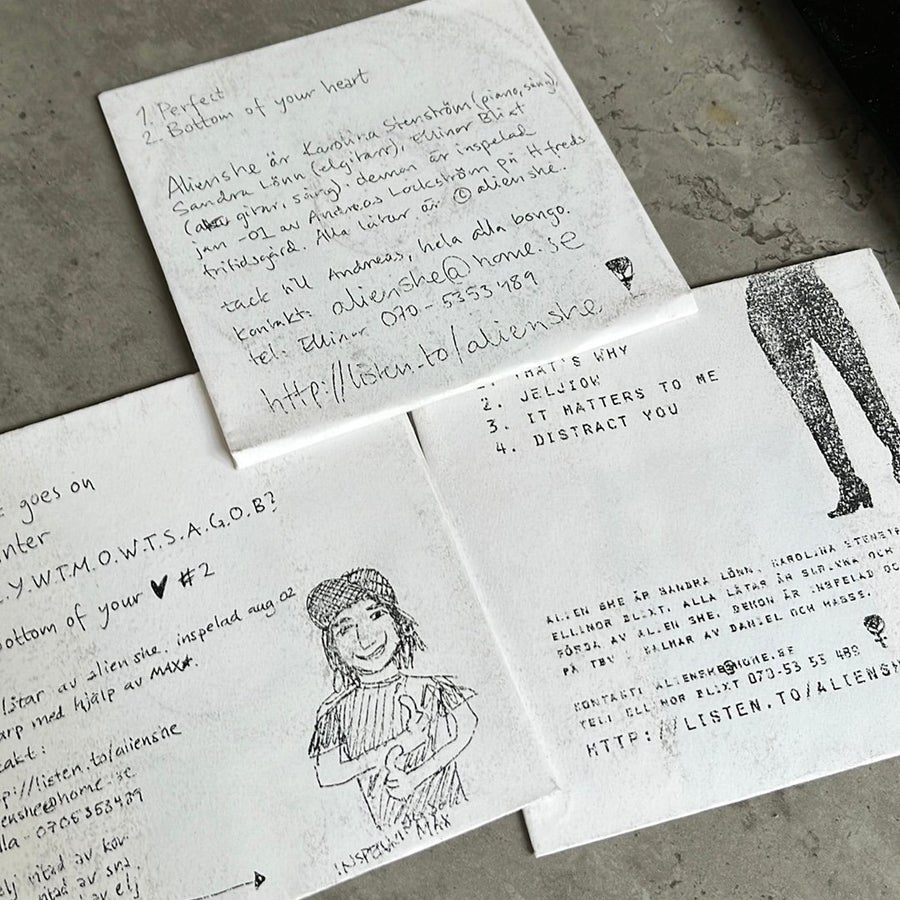 1. Perfect
2. Bottom of your heart
Alienshe är Karolina Stenström (piano, sång)
Sandra Lönn (elgitarr), Ellinor Blixt
gitar, sång). demon är inspelad
jan -01 av Andreas Lockström på H freds
fritidsgård. Alla låtar är © alienshe.
tack till Andreas, hela alla bongo.
Kontakt: alienshe@home.se
tel: Ellinor 070-5353489
http://listen.to/alienshe
THAT'S WHY
2. JELJIOW
3. IT MATTERS TO ME
4. DISTRACT YOU
ALIEN SHE ÄR SANDRA LÖNN, KAROLINA STENSTR
ELLINOR BLIXT. ALLA LÅTAR ÄR SKRIVNA OCH
FÖRDA AV ALIEN SHE. DEMON ÄR INSPELAD OC
PÅ TBV I KALMAR AV DANIEL OCH HASSE.
KONTAKT: ALIENSHE@HOME.SE
TEL: ELLINOR BLIXT 070-53 53 489
HTTP://LISTEN.TO/ALIENSH
goes on
nter
.Y.W.T.M.O.W.T.S.A.G.O.B?
bottom of your ♥ #2
låtar av alienshe. inspelad aug 02
arp med hjälp av MAX★.
takt:
p://listen.to/alienshe
enshe@home.se
lla - 0705353489
elj
av
av elj
INSPELNINGS MAX